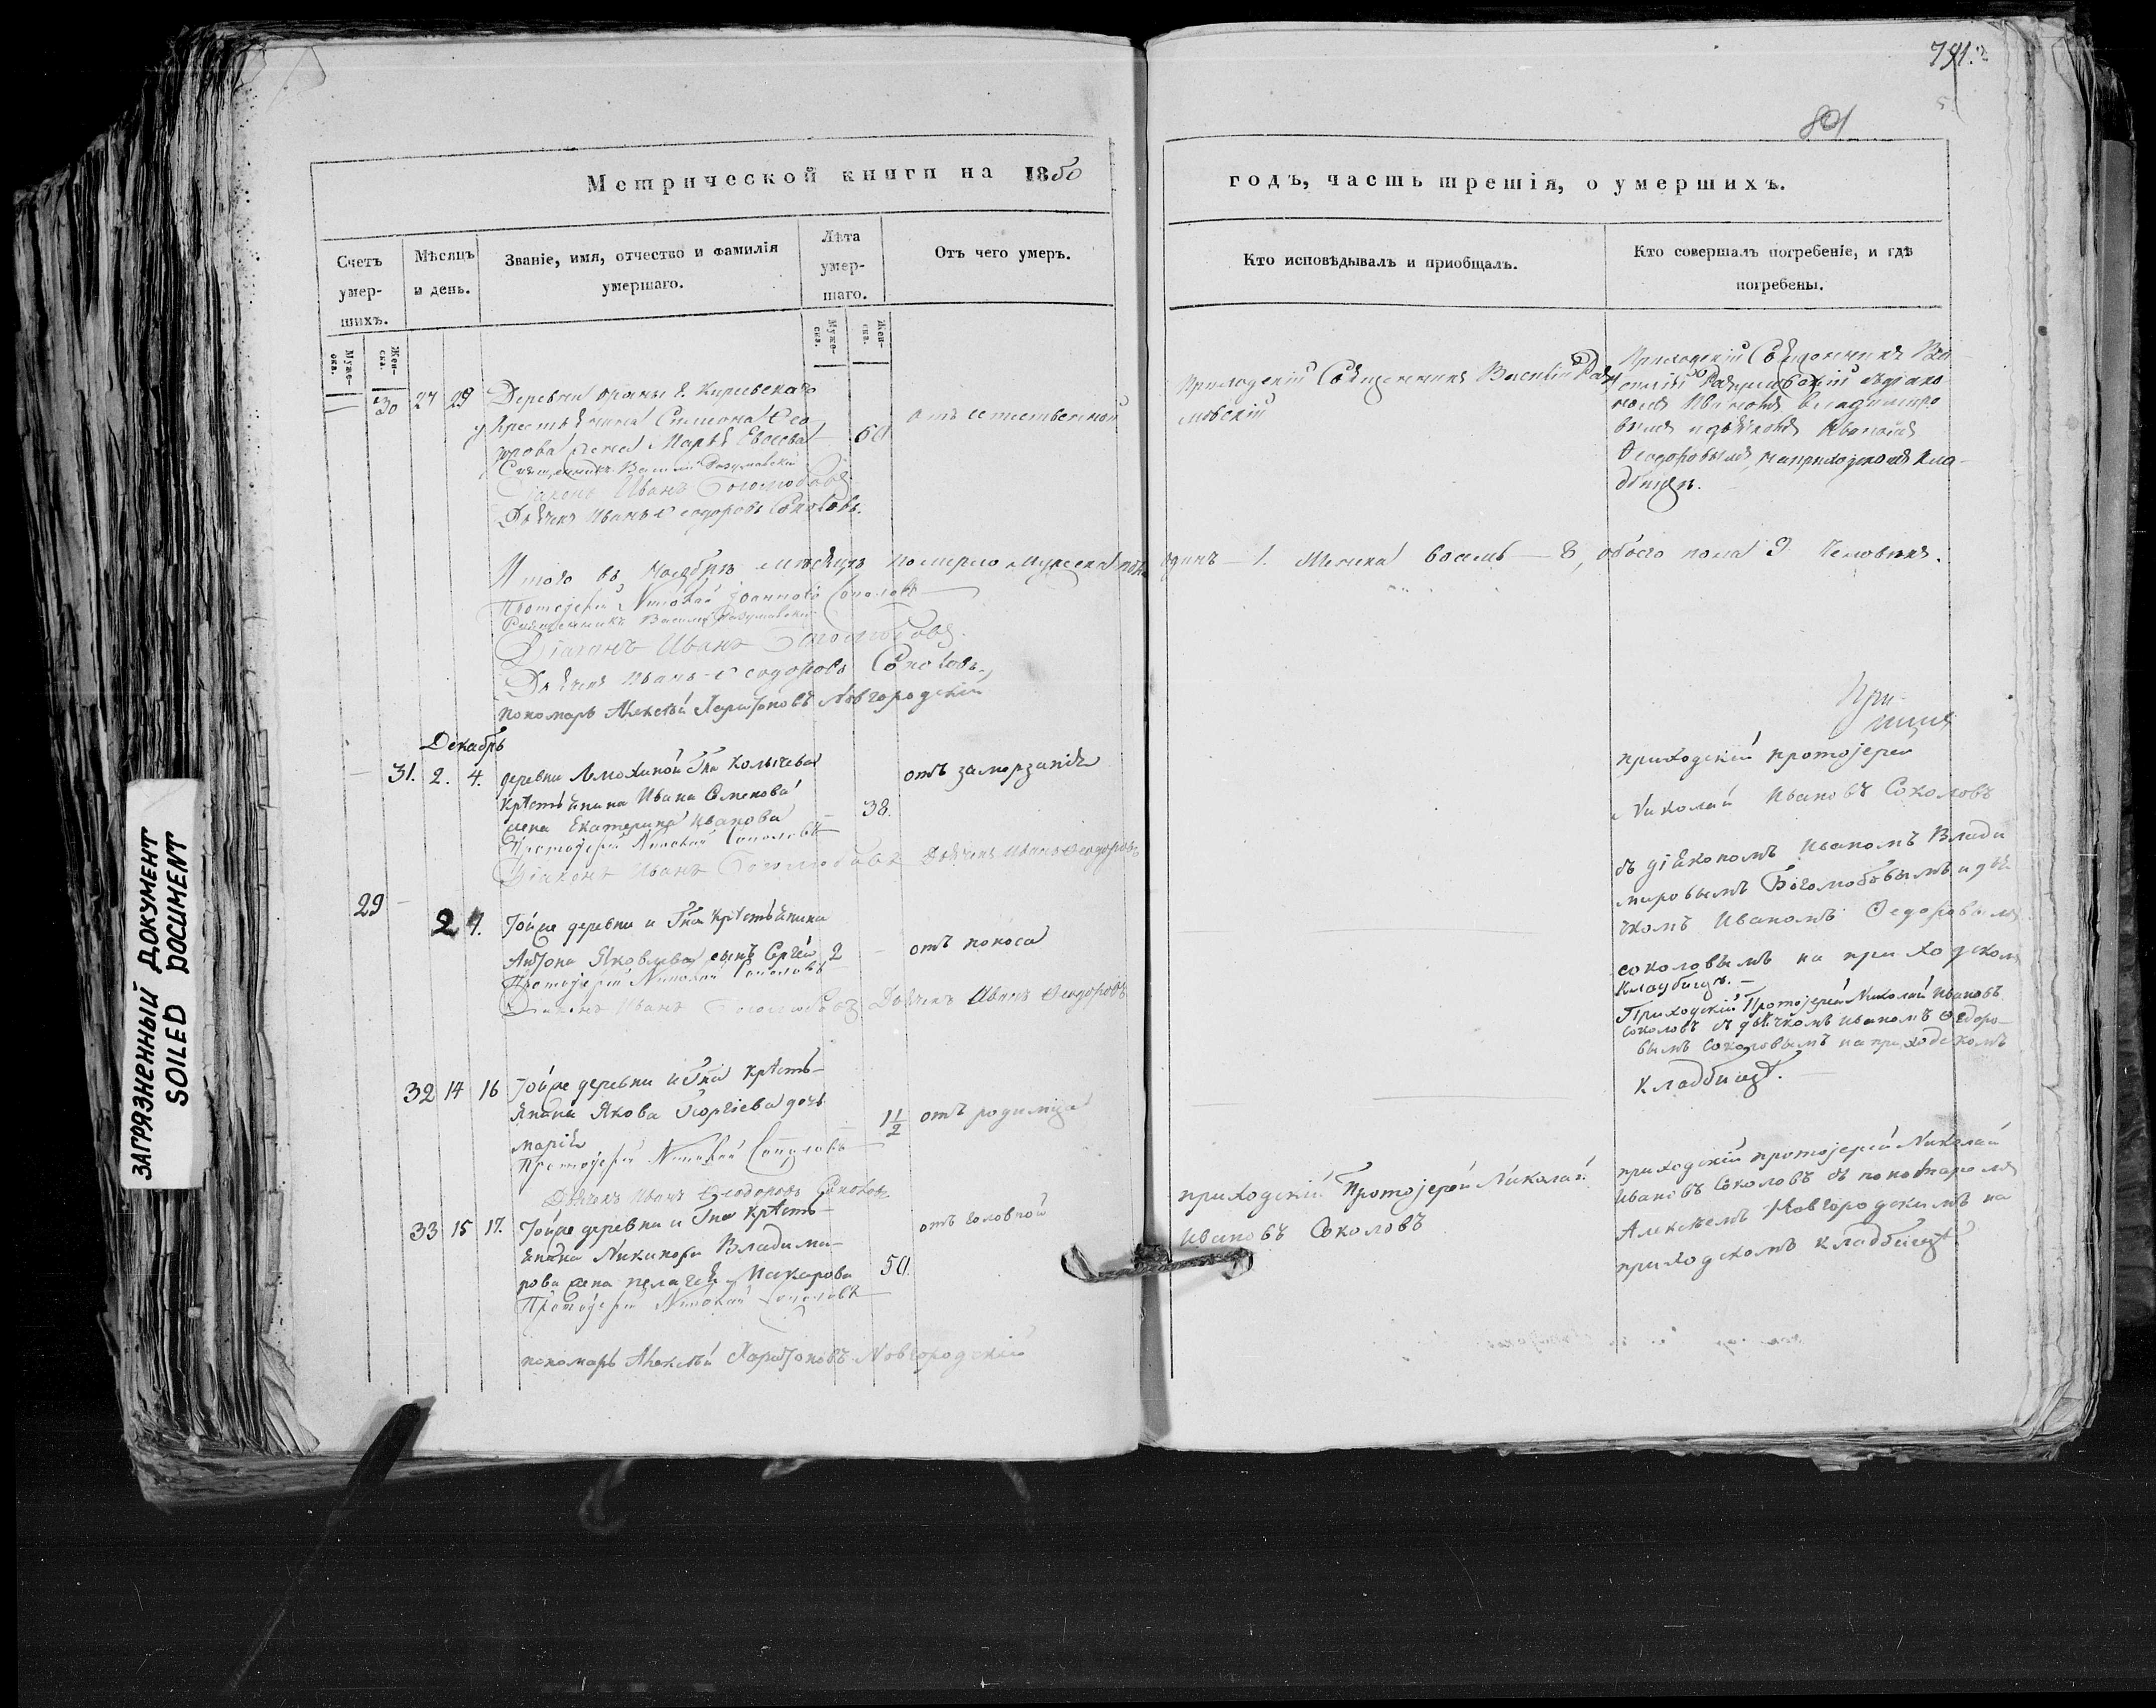 791.
801
Метрической книги на 1850
годъ, часть третія, о умершихъ.
Счетъ умер-шихъ.
Мѣсяцъ и день.
Званіе, имя, отчество и фамилія умершаго.
Лѣта умер-шаго.
Отъ чего умеръ.
Кто исповѣдывалъ и приобщалъ.
Кто совершалъ погребеніе, и гдѣ погребены.
Муже-ска.
Жен-ска.
Муже-ска.
Жен-ска.
30 27 29 Деревни
крестьянина Симеона Ѳео
дорова жена Марья 60
отъ естественной
Священникъ Василій Разумовскій
Діаконъ Иванъ Боголюбовъ
Дьячекъ Иванъ Ѳеодоровъ Соколовъ.
Приходскій Священникъ Василій Разу
мовскій
Приходскій Священникъ Ва
силій Разумовскій съ діако
номъ Иваномъ Владимиро
вымъ и дьячкомъ Иваномъ
Ѳеодоровымъ на приходскомъ кла
дбищѣ.
Итого въ Ноябрѣ мѣсяцѣ померло мужеска пола
одинъ — 1. Женска восемь — 8, обоего пола 9 человѣкъ.
Протоіерей Николай Іоанновъ Соколовъ
Священникъ Василій Разумовскій
Діаконъ Иванъ Боголюбовъ
Дьячекъ Иванъ Ѳеодоровъ Соколовъ
Пономарь Алексѣй Харитоновъ Новгородскій
Декабрь
31. 2. 4. деревни Гна Колычева
крестьянина Ивана Семенова
жена Екатерина Иванова 38.
отъ замерзанія
Протоіерей Николай Соколовъ
Діаконъ Иванъ Боголюбовъ Дьячекъ Иванъ Ѳеодоровъ
приходскій протоіерей
Николай Ивановъ Соколовъ
съ діякономъ Иваномъ Влади
мировымъ Боголюбовымъ и дья
чкомъ Иваномъ Ѳедоровымъ
соколовымъ на приходскомъ
кладбищѣ. —
29 — 2 4. Тойже деревни и Гна крестьянина
Антона Яковлева сынъ Сергей 2 —
отъ поноса
Протоіерей Николай Соколовъ
Діаконъ Иванъ Боголюбовъ Дьячекъ Иванъ Ѳеодоровъ
Приходскій Протоіерей Николай Ивановъ
Соколовъ съ дьячкомъ Иваномъ Ѳедоро—
вымъ Соколовымъ на приходскомъ
кладбищѣ. —
32 14 16 Тойже деревни и Гна кресть—
янина Якова Георгіева дочь
Марія 1 1/2
отъ родимца
Протоіерей Николай Соколовъ
Дьячекъ Иванъ Ѳеодоровъ Соколовъ
33 15 17. Тойже деревни и Гна кресть—
янина Никифора Владими—
рова жена Пелагея Макарова 50.
отъ головной
Протоіерей Николай Соколовъ
пономарь Алексѣй Харитоновъ Новгородскій
приходскій Протоіерей Николай
Ивановъ Соколовъ
приходскій протоіерей Николай
Ивановъ Соколовъ съ пономаремъ
Алексѣемъ Новгородскимъ на
приходскомъ кладбищѣ
ЗАГРЯЗНЕННЫЙ ДОКУМЕНТ
SOILED DOCUMENT